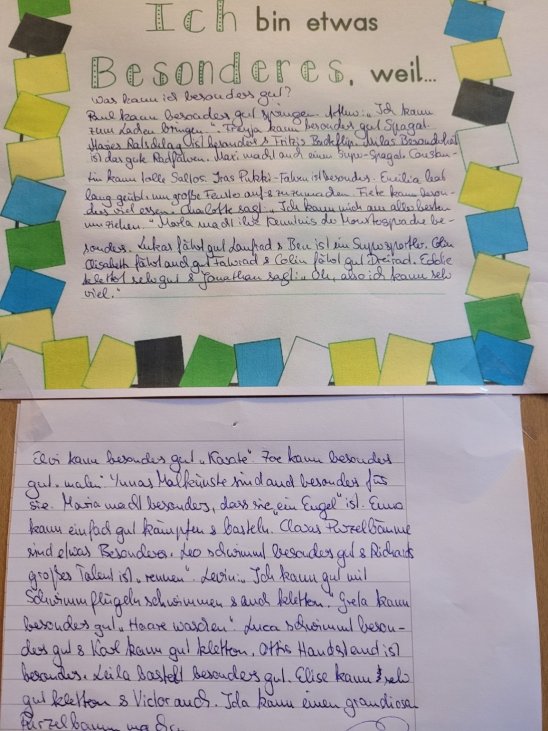 Ich bin etwas
Besonderes, weil...
Was kann ich besonders gut?
Paul kann besonders gut springen. Arthur: „Ich kann
zum Lachen bringen“. Freyja kann besonders gut Spagat.
Radschlag ist besonders & Fritzis Backflip. Besonderheit
ist das gute Radfahren. Maxi macht auch einen Super-Spagat.
tin kann tolle Saltos. Fahren ist besonders. Emilia hat
lang geübt, um große Fenster auf & zuzumachen. Fiete kann beson-
ders viel essen. Charlotte sagt: „Ich kann mich am allerbesten
umziehen.“ Marla macht ihre Kenntnis der Monstersprache be-
sonders. Lukas fährt gut Laufrad & Ben ist ein Supersportler.
Elisabeth fährt auch gut Fahrrad & Colin fährt gut Dreirad. Eddie
klettert sehr gut & Jonathan sagt: „Oh, also ich kann sehr
viel.“
Elvi kann besonders gut „Karate“. Zoe kann besonders
gut „malen“. Yunas Malkünste sind auch besonders für
sie. Maria macht besonders, dass sie „ein Engel“ ist. Enno
kann einfach gut kämpfen & basteln. Claras Purzelbäume
sind etwas Besonderes. Leo schwimmt besonders gut & Richards
großes Talent ist „rennen“. Levin: „Ich kann gut mit
Schwimmflügeln schwimmen & auch klettern. Greta kann
besonders gut „Haare waschen“. Luca schwimmt beson-
ders gut & Karl kann gut klettern. Ottis Handstand ist
besonders. Leila bastelt besonders gut. Elise kann sehr
gut klettern & Victor auch. Ida kann einen grandiosen
Purzelbaum machen